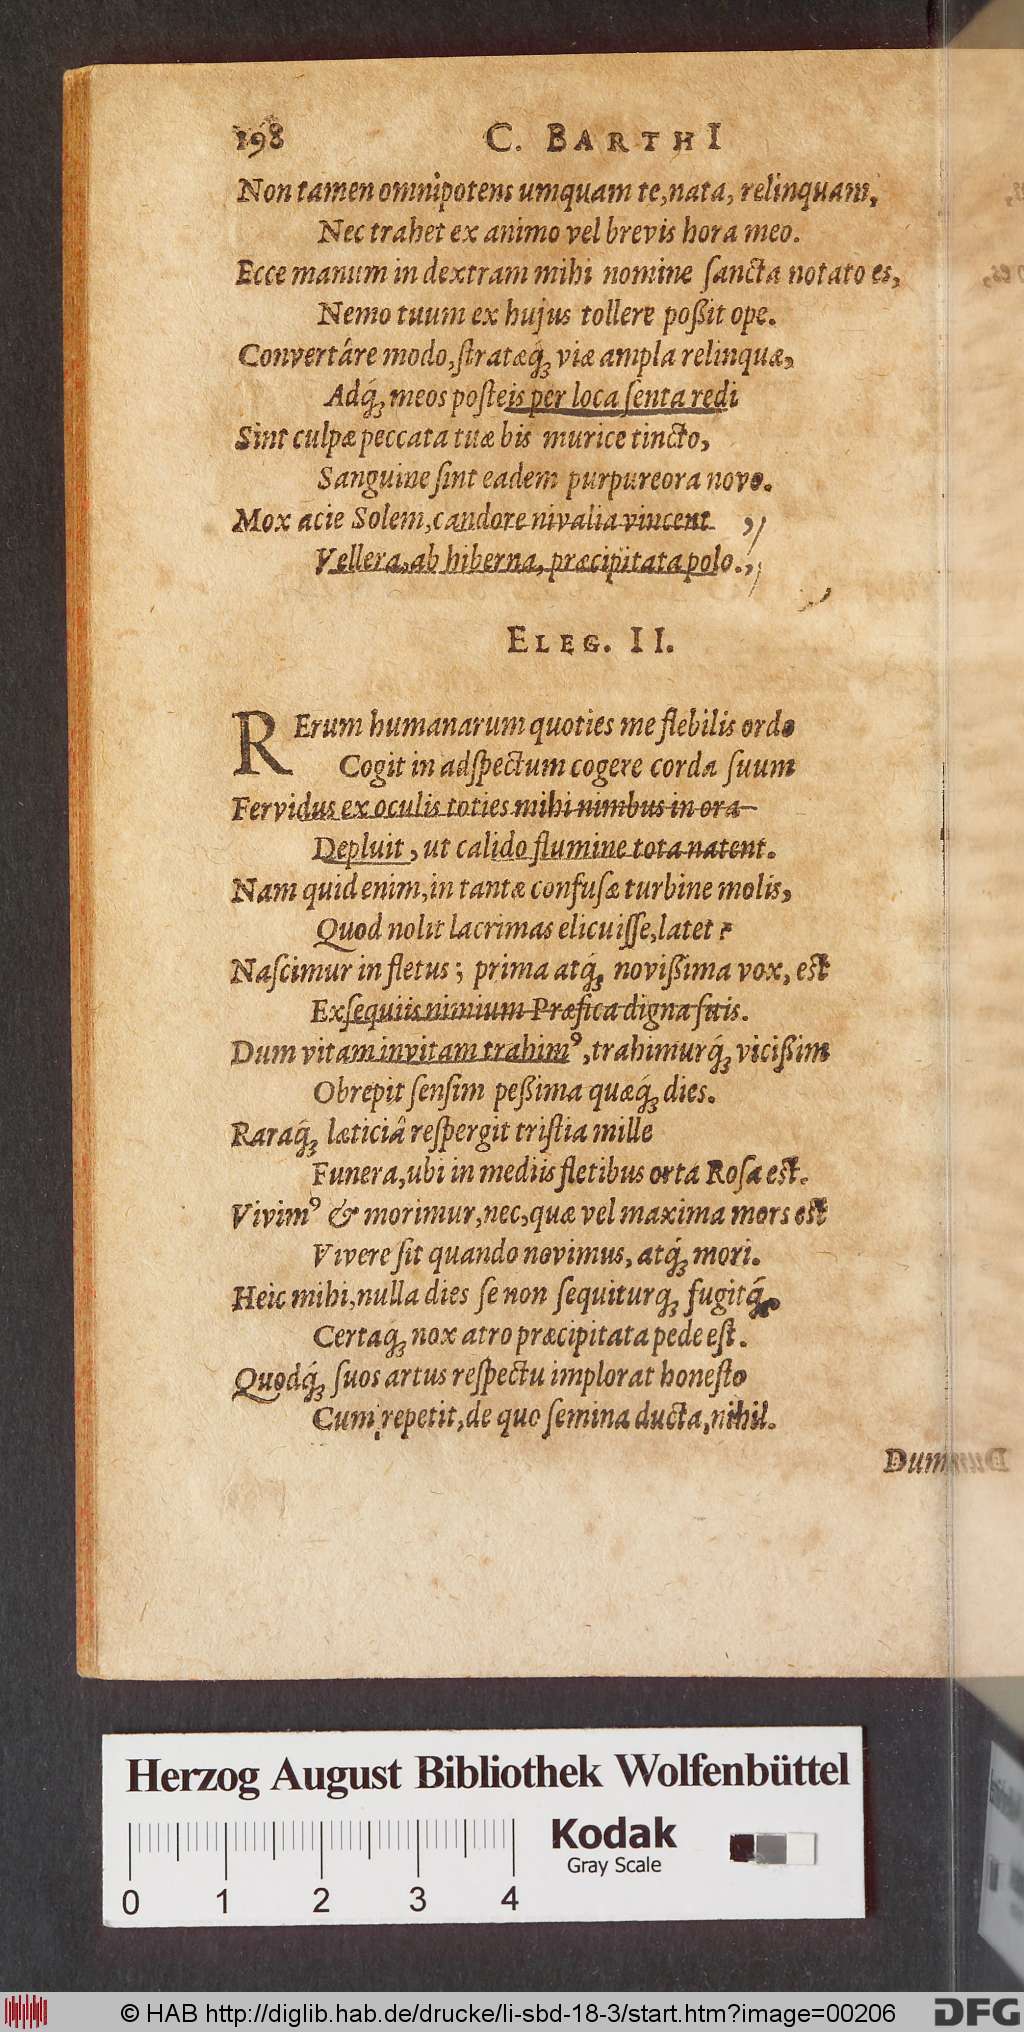 198 C. BARTHI
Non tamen omnipotens umquam te, nata, relinquam,
Nec trahet ex animo vel brevis hora meo.
Ecce manum in dextram mihi nomine ſancta notato es,
Nemo tuum ex hujus tollere poßit ope.
Convertáre modo, ſtratæq́; viæ ampla relinquæ,
Adq́; meos posteis per loca ſenta redi
Sint culpæ peccata tuæ bis murice tincto,
Sanguine ſint eadem purpureora novo.
Mox acie Solem, candore nivalia vincent
Vellera, ab hiberna, præcipitata polo.
ELEG. II.
RErum humanarum quoties me flebilis ordo
Cogit in adſpectum cogere corda ſuum
Fervidus ex oculis toties mihi nimbus in ora
Depluit, ut calido flumine tota natent.
Nam quid enim, in tantæ confuſæ turbine molis,
Quod nolit lacrimas elicuiſſe, latet?
Naſcimur in fletus; prima atq́; novißima vox, est
Exſequiis nimium Præfica digna ſuis.
Dum vitam invitam trahimꝰ, trahimurq́; vicißim
Obrepit ſenſim peßima quæq́; dies.
Raraq́; læticiâ reſpergit triſtia mille
Funera, ubi in mediis fletibus orta Roſa est.
Vivimꝰ & morimur, nec, quæ vel maxima mors est
Vivere ſit quando novimus, atq́; mori.
Heic mihi, nulla dies ſe non ſequiturq; fugitq́;
Certaq́; nox atro præcipitata pede eſt.
Quodq́; ſuos artus reſpectu implorat honeſto
Cum repetit, de quo ſemina ducta, nihil.
Dum
Herzog August Bibliothek Wolfenbüttel
Kodak
Gray Scale
0 1 2 3 4
© HAB http://diglib.hab.de/drucke/li-sbd-18-3/start.htm?image=00206
DFG